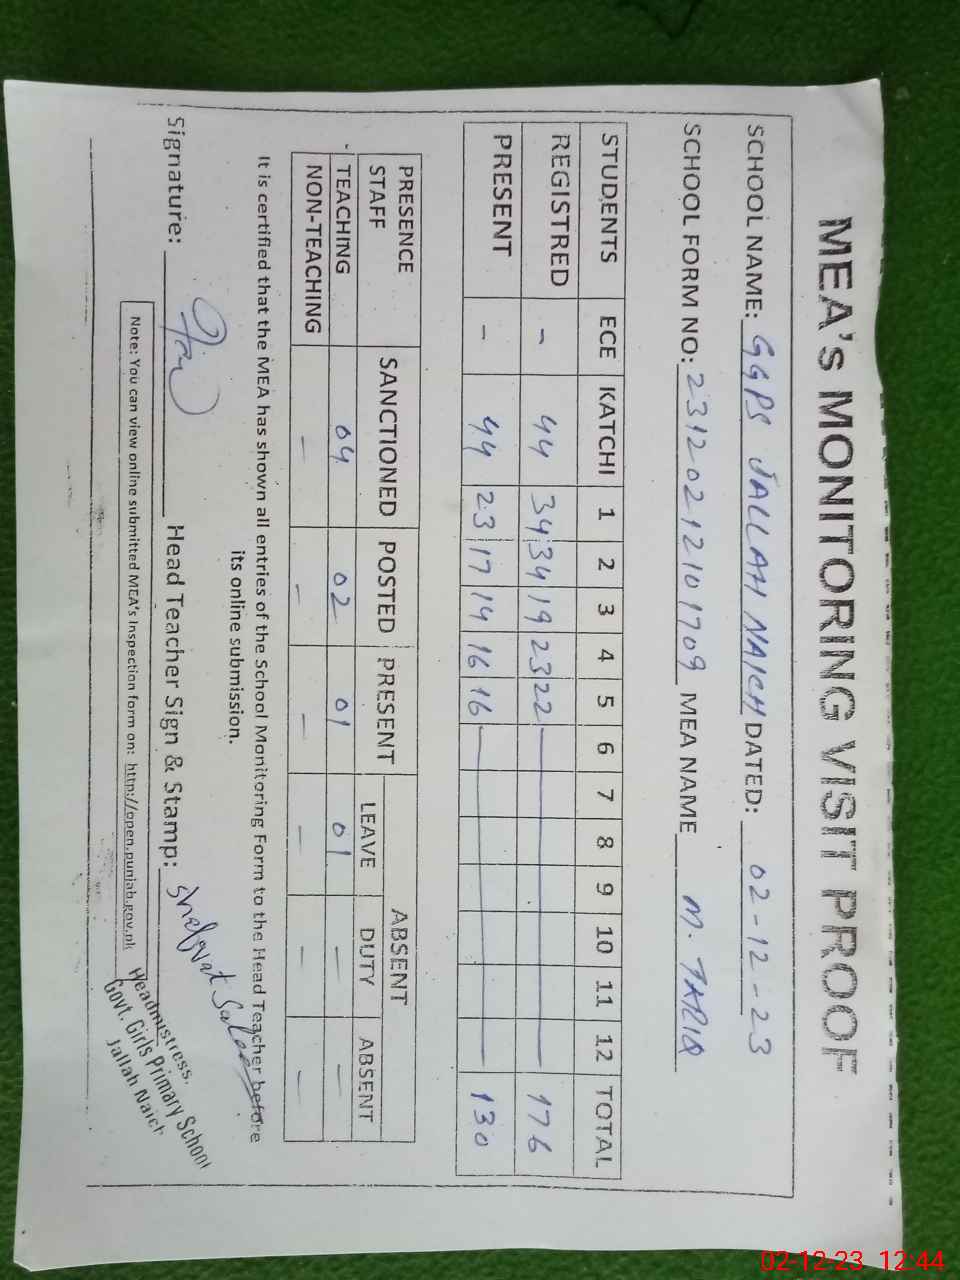 MEA's MONITORING VISIT PROOF
SCHOOL NAME: GGPS JALLAH NAICH DATED: 02-12-23
SCHOOL FORM NO: 23120212101709 MEA NAME M. TARIQ
STUDENTS ECE KATCHI 1 2 3 4 5 6 7 8 9 10 11 12 TOTAL
REGISTRED - 44 34 34 19 23 22 176
PRESENT - 44 23 17 14 16 16 130
PRESENCE STAFF SANCTIONED POSTED PRESENT ABSENT
LEAVE DUTY ABSENT
TEACHING 04 02 01 01 - -
NON-TEACHING - - - - - -
It is certified that the MEA has shown all entries of the School Monitoring Form to the Head Teacher before
its online submission.
Signature: Head Teacher Sign & Stamp:
Headmistress,
Govt. Girls Primary School
Jallah Naich
Note: You can view online submitted MEA's Inspection form on: http://open.punjab.gov.pk
02-12-23 12:44